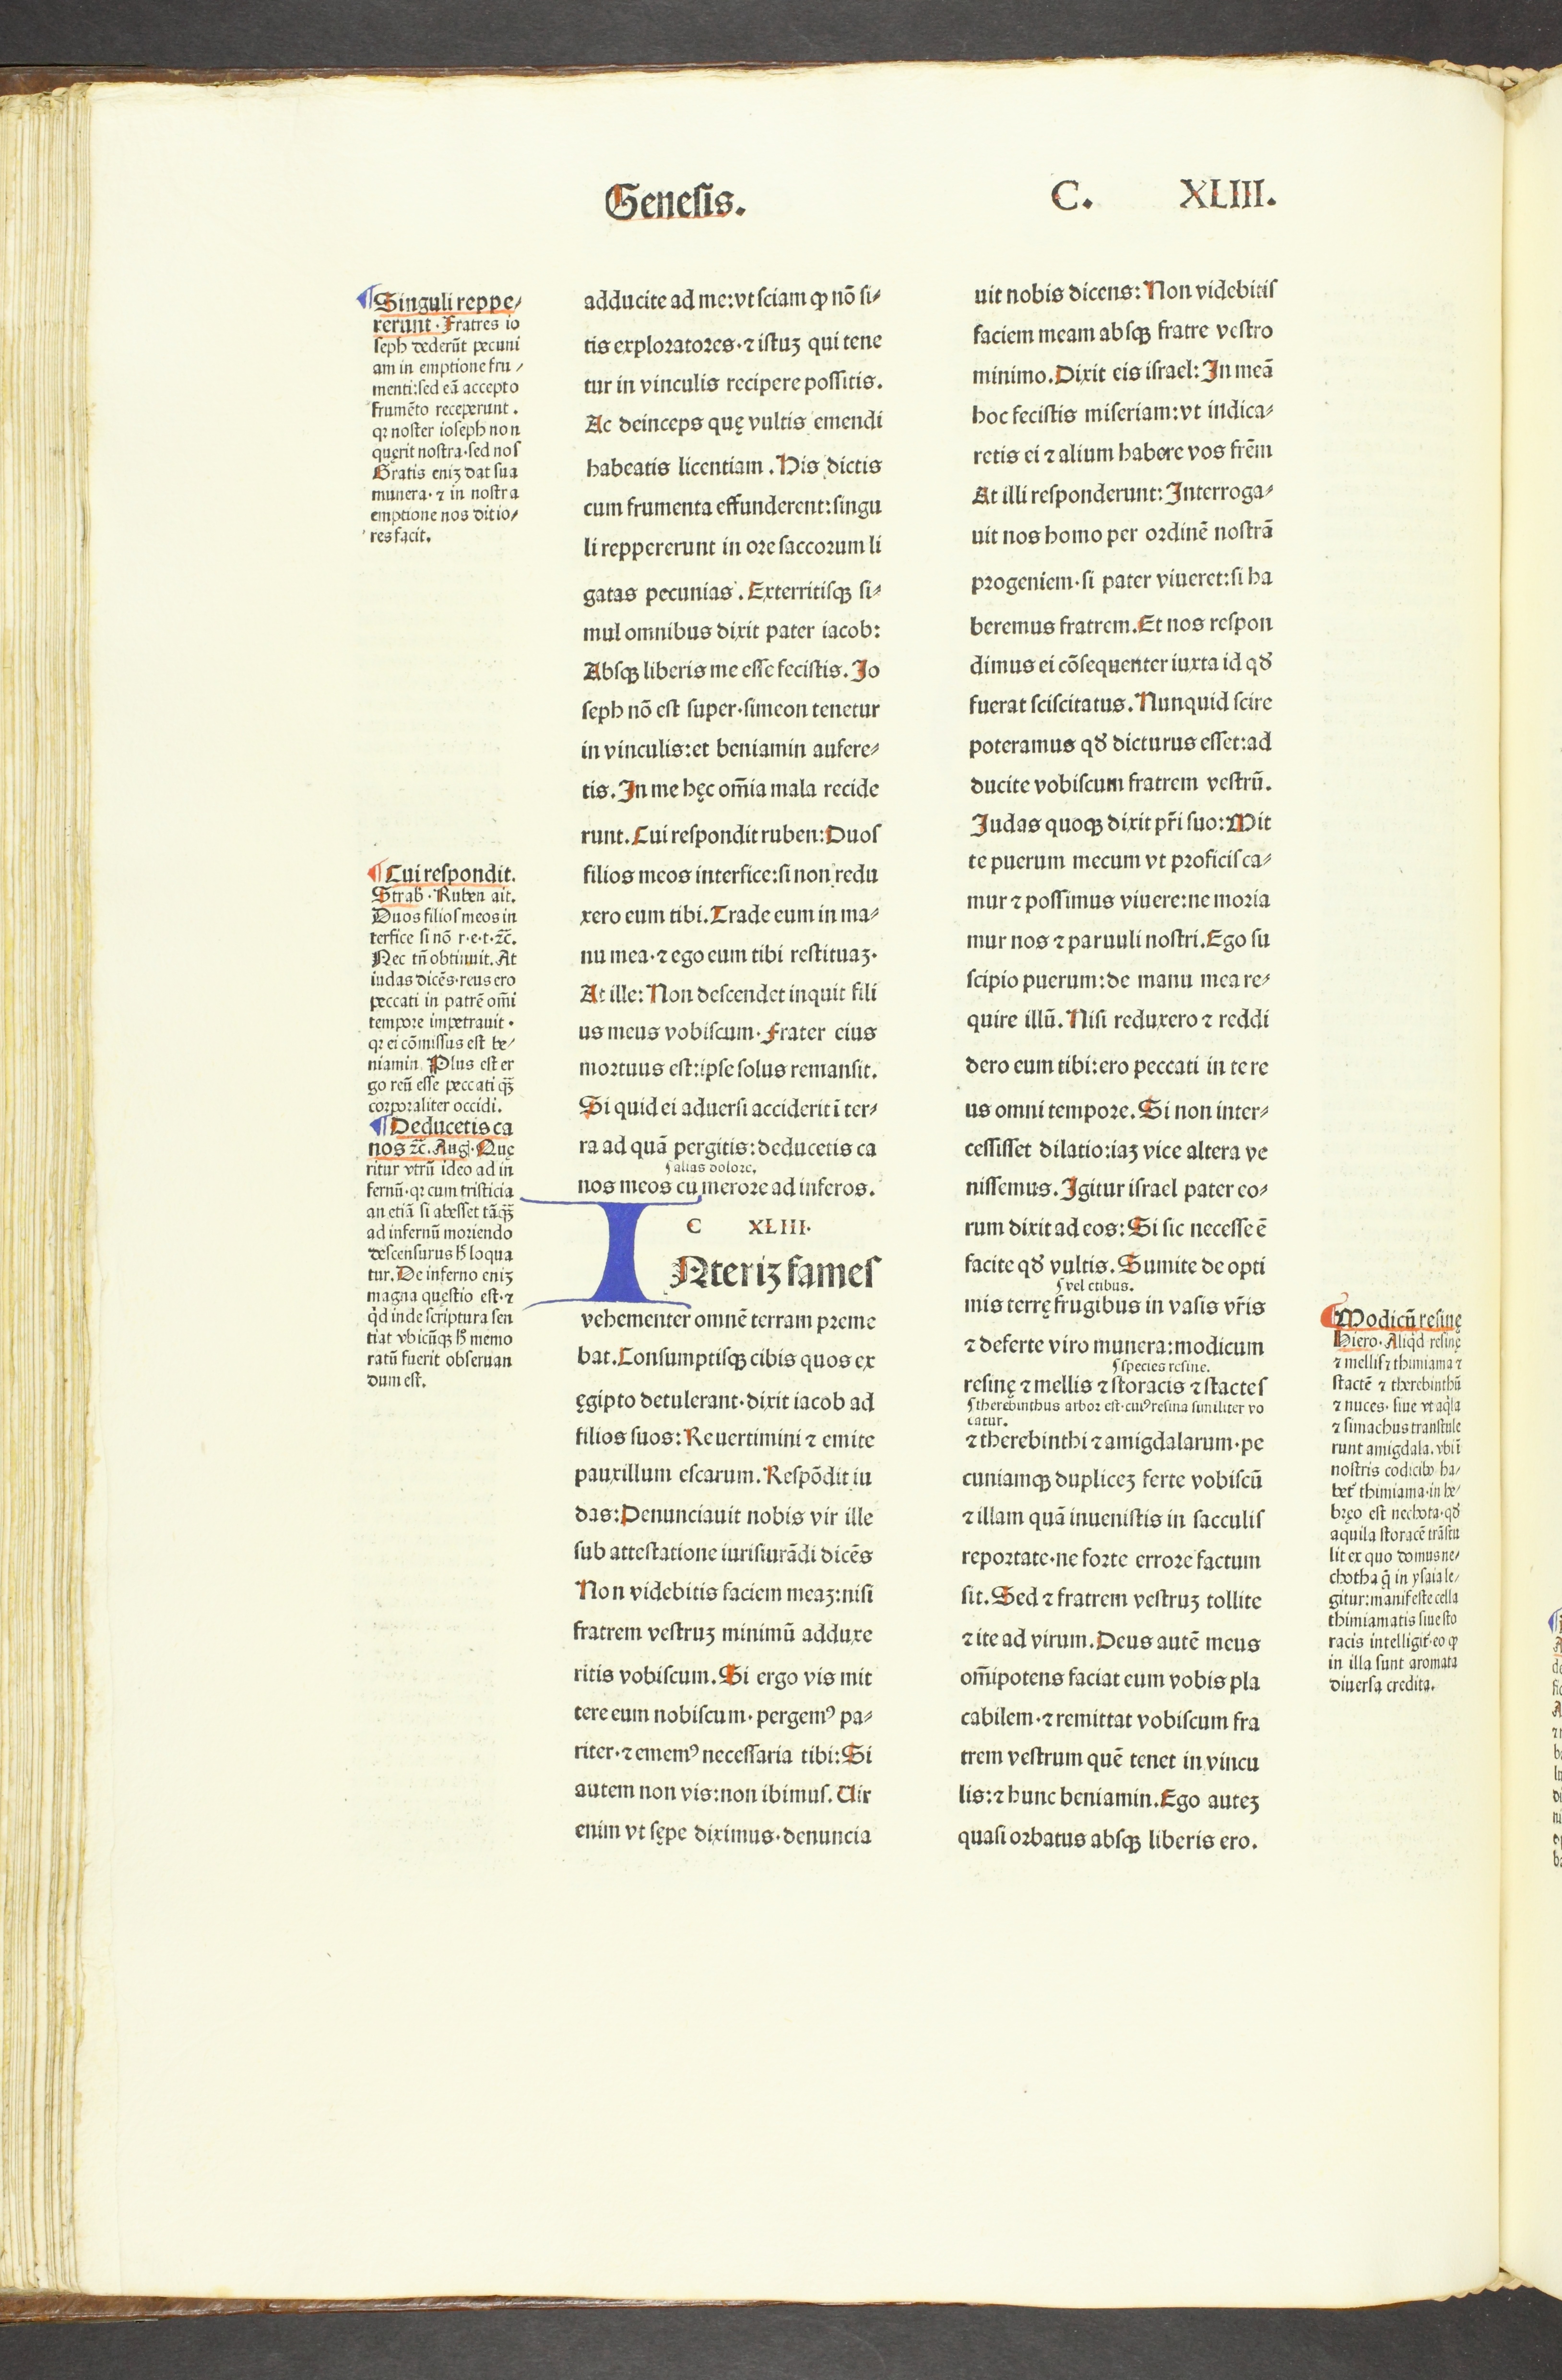 Genesis.
C. XLIII.
¶Singuli reppe/
rerunt. Fratres io
seph dederūt pecuni
am in emptione fru/
menti:sed eā accepto
frumēto receperunt.
qꝛ noster ioseph non
quęrit nostra·sed nos
Gratis eniꝫ dat sua
munera·⁊ in nostra
emptione nos ditio/
res facit.
¶Cui respondit.
Strab̄·Ruben ait.
Duos filios meos in
terfice si nō r·e·t·⁊c̄.
Nec tn̄ obtinuit. At
iudas dicēs·reus ero
peccati in patrē om̄i
tempore impetrauit·
qꝛ ei cōmissus est be/
niamin. Plus est er
go reū esse peccati qꝫ̄
corporaliter occidi.
¶Deducetis ca
nos ⁊c̄. Auḡ·Quę
ritur vtrū ideo ad in
fernū·qꝛ cum tristicia
an etiā si abesset tāqꝫ̄
ad infernū moriendo
descensurus h̄ loqua
tur. De inferno eniꝫ
magna quęstio est·⁊
qͥd inde scriptura sen
tiat vbicūqꝫ h̄ memo
ratū fuerit obseruan
dum est.
adducite ad me:vt sciam ꝙ nō si⸗
tis exploratores·⁊ istuꝫ qui tene
tur in vinculis recipere possitis.
Ac deinceps quę vultis emendi
habeatis licentiam. His dictis
cum frumenta effunderent:singu
li reppererunt in ore saccorum li
gatas pecunias. Exterritisqꝫ si⸗
mul omnibus dixit pater iacob:
Absqꝫ liberis me esse fecistis. Jo
seph nō est super·simeon tenetur
in vinculis:et beniamin aufere⸗
tis. In me hęc om̄ia mala recide
runt. Cui respondit ruben:Duos
filios meos interfice:si non redu
xero eum tibi. Trade eum in ma⸗
nu mea·⁊ ego eum tibi restituaꝫ·
At ille: Non descendet inquit fili
us meus vobiscum·Frater eius
mortuus est:ipse solus remansit.
Si quid ei aduersi acciderit ī ter⸗
ra ad quā pergitis:deducetis ca
ſ alias dolore.
nos meos cu merore ad inferos.
C XLIII·
INteriꝫ fames
vehementer omnē terram preme
bat. Consumptisqꝫ cibis quos ex
ęgipto detulerant·dixit iacob ad
filios suos: Reuertimini ⁊ emite
pauxillum escarum. Respōdit iu
das:Denunciauit nobis vir ille
sub attestatione iurisiurādi dicēs
Non videbitis faciem meaꝫ:nisi
fratrem vestruꝫ minimū adduxe
ritis vobiscum. Si ergo vis mit
tere eum nobiscum·pergemꝰ pa⸗
riter·⁊ ememꝰ necessaria tibi:Si
autem non vis:non ibimus. Uir
enim vt sępe diximus·denuncia
uit nobis dicens: Non videbitis
faciem meam absqꝫ fratre vestro
minimo. Dixit eis israel: In meā
hoc fecistis miseriam:vt indica⸗
retis ei ⁊ alium habere vos frēm
At illi responderunt: Interroga⸗
uit nos homo per ordinē nostrā
progeniem·si pater viueret:si ha
beremus fratrem. Et nos respon
dimus ei cōsequenter iuxta id qđ
fuerat sciscitatus. Nunquid scire
poteramus qđ dicturus esset:ad
ducite vobiscum fratrem vestrū.
Judas quoqꝫ dixit pr̄i suo: Mit
te puerum mecum vt proficisca⸗
mur ⁊ possimus viuere:ne moria
mur nos ⁊ paruuli nostri. Ego su
scipio puerum:de manu mea re⸗
quire illū. Nisi reduxero ⁊ reddi
dero eum tibi:ero peccati in te re
us omni tempore. Si non inter⸗
cessisset dilatio:iaꝫ vice altera ve
nissemus. Igitur israel pater eo⸗
rum dixit ad eos: Si sic necesse ē
facite qđ vultis. Sumite de opti
ſ vel ctibus.
mis terrę frugibus in vasis vr̄is
⁊ deferte viro munera:modicum
ſ species resine.
resinę ⁊ mellis ⁊ storacis ⁊ stactes
ſ therebinthus arbor est·cuiꝰ resina similiter vo
catur.
⁊ therebinthi ⁊ amigdalarum·pe
cuniamqꝫ dupliceꝫ ferte vobiscū
⁊ illam quā inuenistis in sacculis
reportate·ne forte errore factum
sit. Sed ⁊ fratrem vestruꝫ tollite
⁊ ite ad virum. Deus autē meus
om̄ipotens faciat eum vobis pla
cabilem·⁊ remittat vobiscum fra
trem vestrum quē tenet in vincu
lis:⁊ hunc beniamin. Ego auteꝫ
quasi orbatus absqꝫ liberis ero.
¶Modicū resinę
Hiero·Aliqͥd resinę
⁊ mellis ⁊ thimiama ⁊
stactē ⁊ therebinthū
⁊ nuces·siue vt aqͥla
⁊ simachus transtule
runt amigdala. vbi ī
nostris codicibꝰ ha/
bet̄ thimiama·in he/
bręo est nechota·qđ
aquila storacē trāstu
lit ex quo domus ne/
chotha q̄ in ysaia le/
gitur:manifeste cella
thimiamatis siue sto
racis intelligit̄·eo ꝙ
in illa sunt aromata
diuersa credita.